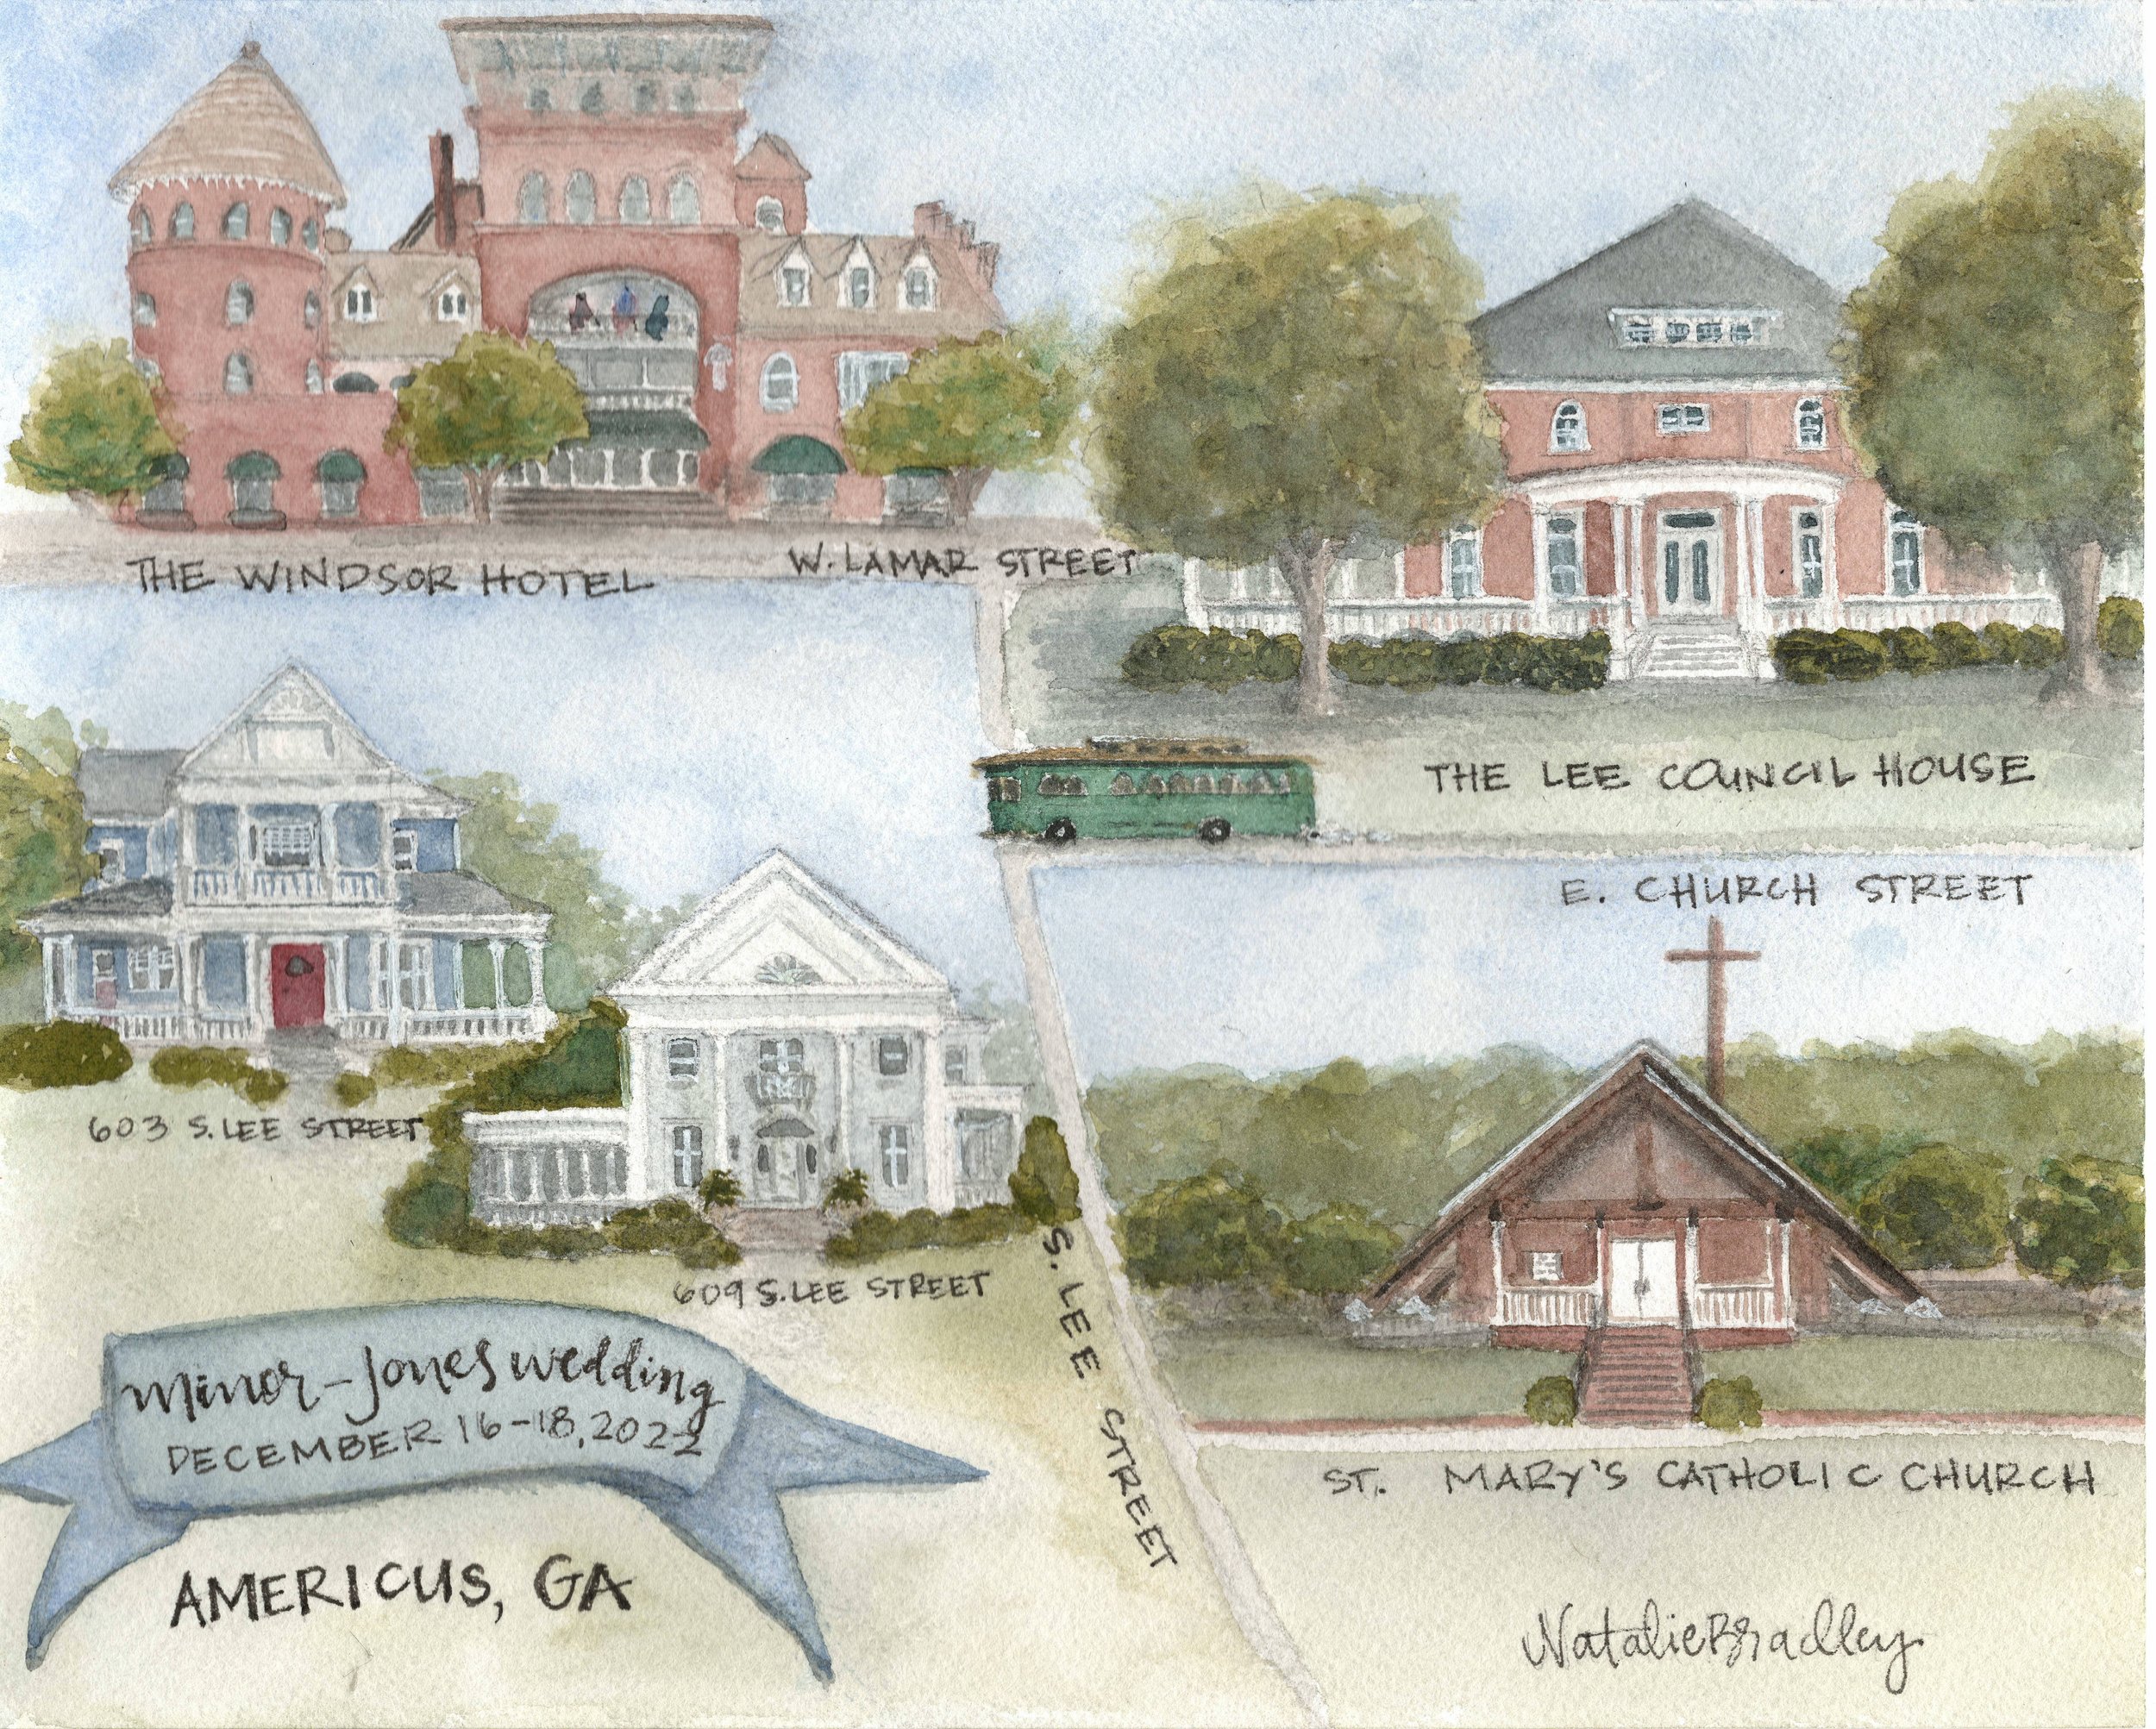 THE WINDSOR HOTEL
W. LAMAR STREET
THE LEE COUNCIL HOUSE
E. CHURCH STREET
603 S. LEE STREET
609 S. LEE STREET
S. LEE STREET
minor-Jones wedding
DECEMBER 16-18, 2022
AMERICUS, GA
ST. MARY'S CATHOLIC CHURCH
Natalie Bradley